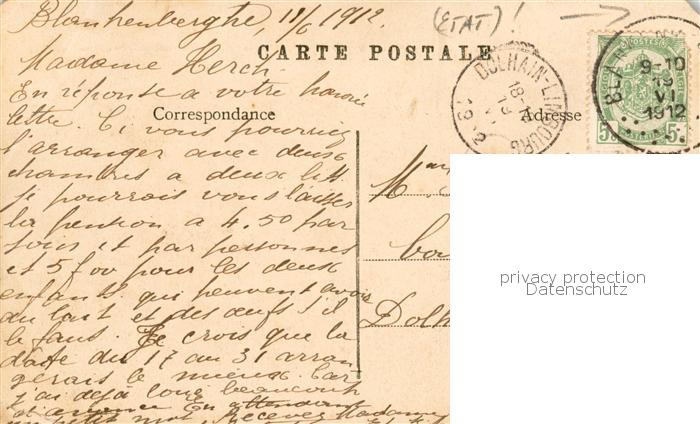 Blankenberghe, 11/6 1912.
(ETAT)!
CARTE POSTALE
Madame Herch
En réponse a votre honoré
lettre. Si vous pourriez
l'arranger avec deux
chambres a deux lits
je pourrais vous laisser
la pention a 4.50 par
jours et par personnes
et 5 f 00 pour les deux
enfants qui peuvent avoir
du lait et des œufs s'il
le faut. Je crois que la
date du 17 au 31 arran
gerais le mieux. Car
j'ai déjà loué beaucoup
et En attendant
un petit mot, recevez Madame
Correspondance
Adresse
DOLHAIN-LIMBOURG
18
19
9-10
19
VI
1912
5 5
Dolh
privacy protection
Datenschutz